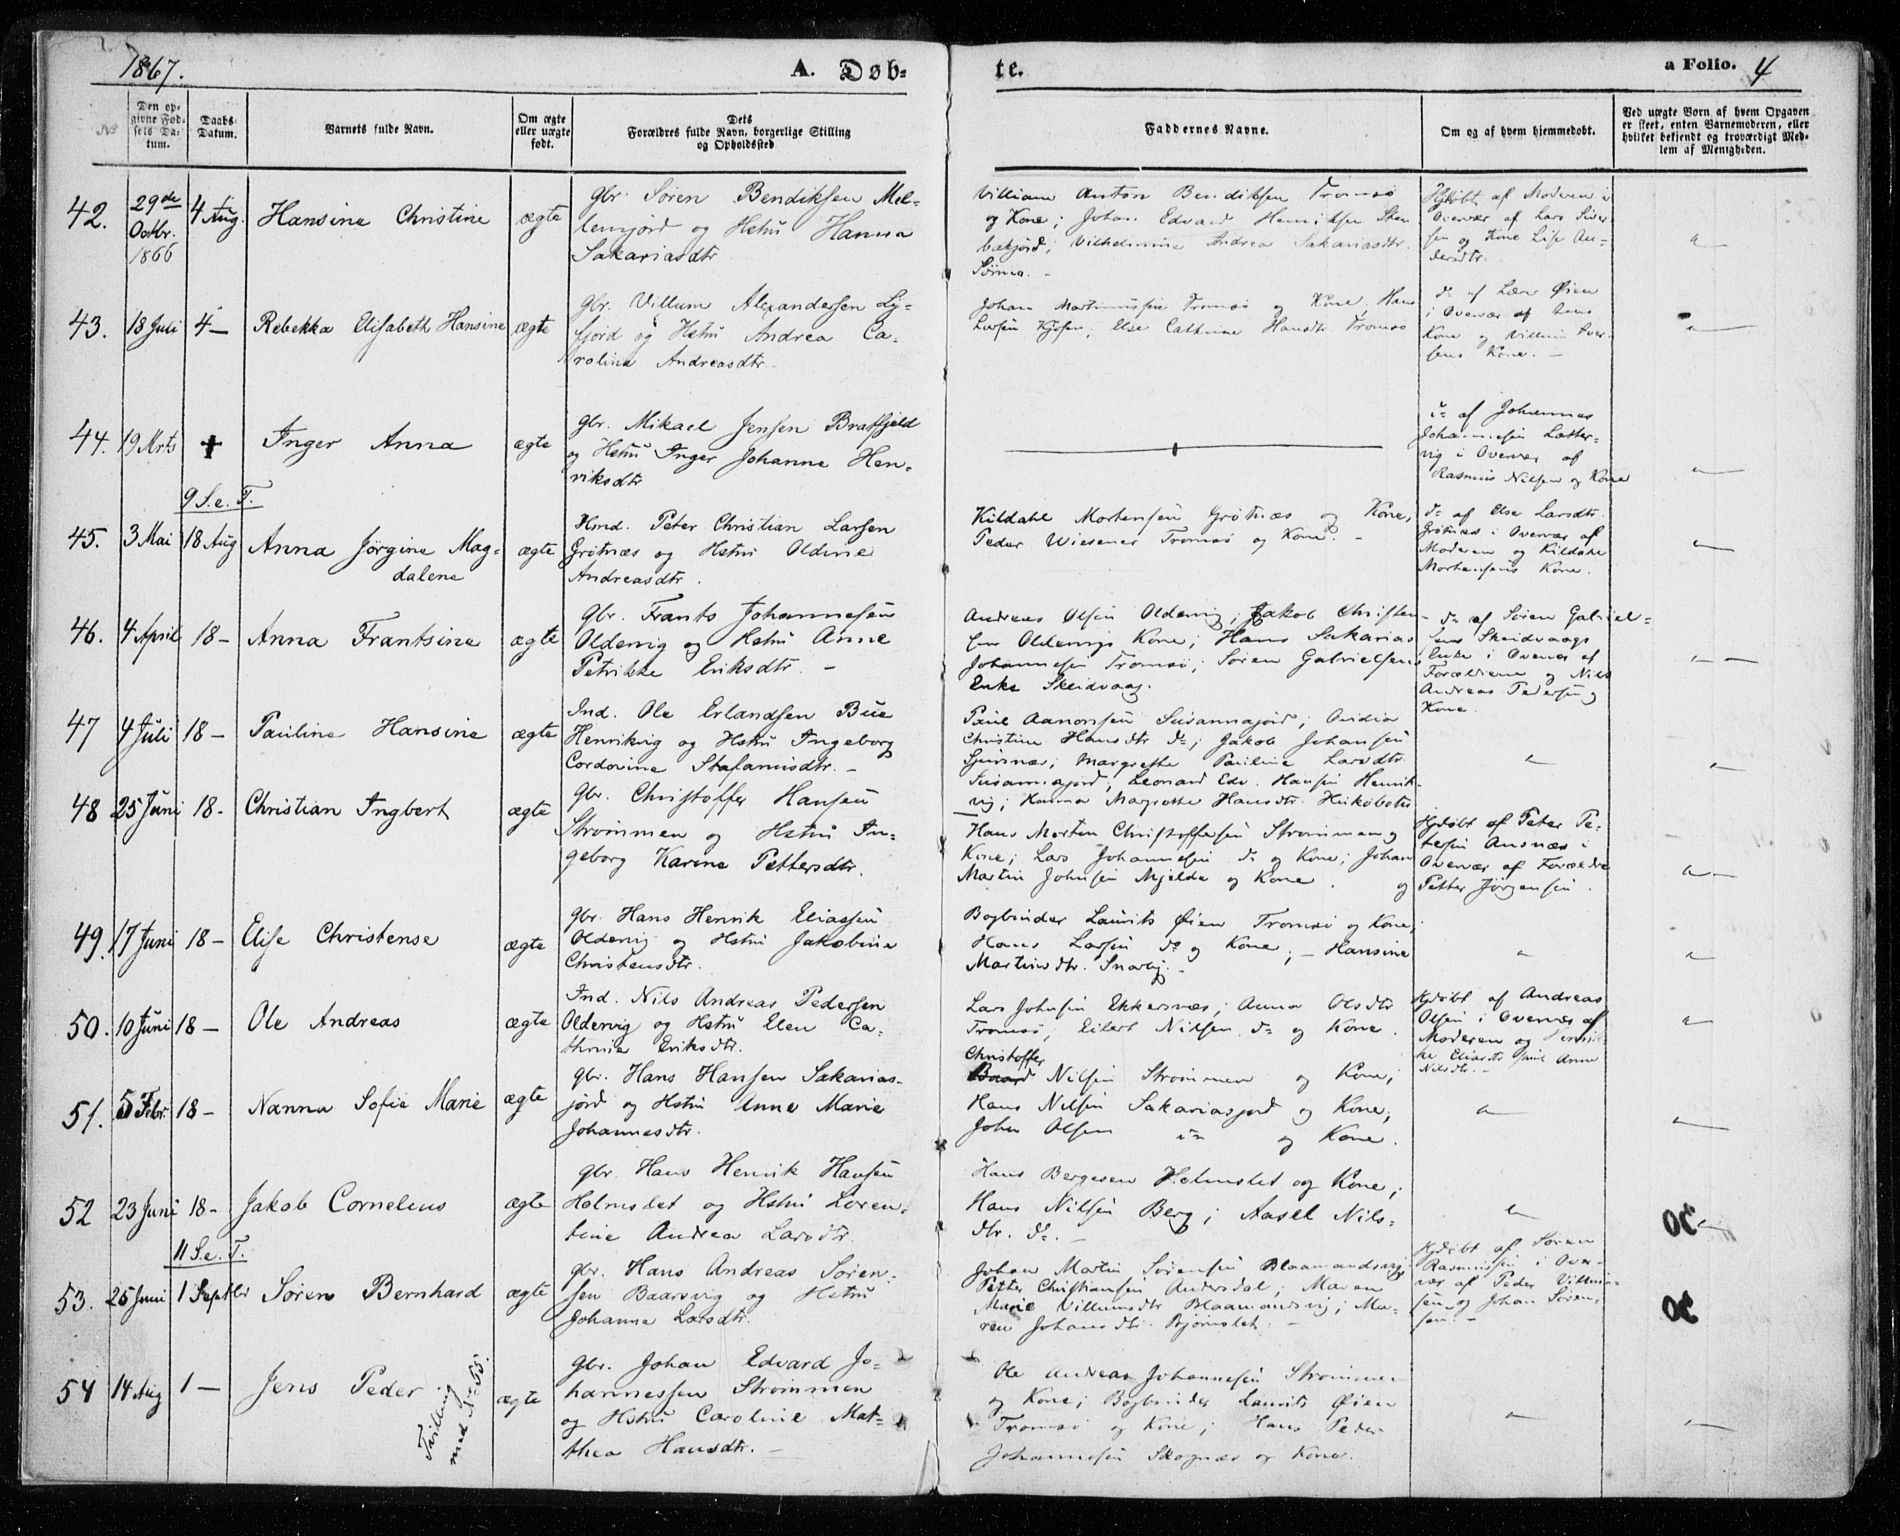 1867.
A. Døb-
te.
a Folio. 4
No
Den op-
givne Fød-
sels Da-
tum.
Daabs-
Datum.
Barnets fulde Navn.
Om ægte
eller uægte
født.
Dets
Forældres fulde Navn, borgerlige Stilling
og Opholdssted
Faddernes Navne.
Om og af hvem hjemmedøbt.
Ved uægte Børn af hvem Opgaven
er skeet, enten Barnemoderen, eller
hvilket bekjendt og troværdigt Med-
lem af Menigheden.
42. 29de Octbr. 1866 4 Aug. Hansine Christine ægte
Gbr. Søren Bendiksen Mel-
lemjord og Hstru Hanna
Sakariasdtr.
Villiam Anton Bendiksen Tromsø
og Kone; Johan Edvard Henriksen
Vilhelmine Andrea Sakariasdtr.
Hjdøbt af Moderen i
Overvær af Lars Siver-
sen og Kone Lise An-
dersdtr.
43. 18 Juli 4 — Rebekka Elisabeth Hansine ægte
Gbr. Villum Alexandersen Ly-
fjord og Hstru Andrea Ca-
rolina Andreasdtr.
Johan Martinussen Tromsø og Kone; Hans
Larsen; Else Cathrine Hansdtr. Tromsø
do af Øien
i Overvær af
Kone og Villum
sens Kone. —
44. 19 Mrts ✝ Inger Anna ægte
Gbr. Mikael Jensen Bratfjeld
og Hstru Inger Johanne Hen-
riksdtr
do af Johannes
Johannesen Latter-
vig i Overvær af
Rasmus Nilsen og Kone
9 S. e. T.
45. 3 Mai 18 Aug Anna Jørgine Mag-
dalena ægte
Hmd. Peter Christian Larsen
Grøtnæs og Hstru Oldine
Andreasdtr.
Kildahl Mortensen Grøtnæs og Kone,
Peder Wiesener Tromsø og Kone. —
do af Else Larsdtr.
Grøtnæs i Overvær af
Moderen og Kildahl
Mortensens Kone.
46. 4 April 18 — Anna Frantsine ægte
Gbr. Frants Johannesen
Oldervig og Hstru Anne
Petrikke Eriksdtr. —
Andreas Olsen Oldervig; Jakob Christen-
sen Oldervigs Kone; Hans Sakarias
Johannesen Tromsø; Søren Gabrielsens
Enke Skeidvaag.
do af Søren Gabriel-
sens Skeidvaags
Enke i Overvær af
Forældrene og Nils
Andreas Pedersen og
Kone.
47 4 Juli 18 — Pauline Hansine ægte
Ind. Ole Erlandsen Bue
Henrikvig og Hstru Ingeborg
Cordovine Stefanusdtr. —
Paul Aanonsen Susannajord; Ovidia
Christine Hansdtr do; Jakob Johansen
Margrethe Pauline Larsdtr.
Susannajord; Leonard Edv. Hansen Henrik-
vig; Hanna Margrethe Hansdtr.
48 25 Juni 18 - Christian Ingbert ægte
Gbr. Christoffer Hansen
Strømmen og Hstru In-
geborg Karine Pettersdtr.
Hans Morten Christoffersen Strømmen og
Kone; Lars Johannesen do og Kone; Johan
Martin Johnsen Mjelde og Kone.
Hjdøbt af Peter Pe-
tersen Ansnæs i
Overvær af Forældre
og Petter Jørgensen.
49. 17 Juni 18 — Elise Christense ægte
Gbr. Hans Henrik Eliassen
Oldervig og Hstru Jakobine
Christensdtr.
Bogbinder Laurits Øien Tromsø og Kone;
Hans Larsen do og Kone; — Hansine
Martinsdtr. Snarby. —
50. 10 Juni 18 — Ole Andreas ægte
Ind. Nils Andreas Pedersen
Oldervig og Hstru Elen Ca-
thrine Eriksdtr.
Lars Johnsen Ekkersnæs; Anna Olsdtr
Tromsø; Eilert Nilsen do og Kone.
Hjdøbt af Andreas
Olsen i Overvær af
Moderen og
Eliasdtr samt Anne
Nilsdtr. —
51. 5 Febr. 18 — Nanna Sofie Marie ægte
Gbr. Hans Hansen Sakarias-
jord og Hstru Anne Marie
Johannesdtr.
Christoffer
Baard Nilsen Strømmen og Kone;
Hans Nilsen Sakariasjord og Kone;
John Olsen do og Kone.
52 23 Juni 18 - Jakob Cornelius ægte
Gbr. Hans Henrik Hansen
Holmslet og Hstru Loren-
tine Andrea Larsdtr.
Hans Bergesen Holmslet og Kone;
Hans Nilsen Berg; Aasel Nils-
dtr. do. —
11 S. e. T.
53. 25 Juni 1 Septbr Søren Bernhard ægte
Gbr. Hans Andreas Søren-
sen Baarsvig og Hstru
Johanna Larsdtr.
Johan Martin Sørensen Blaamandsvig
Petter Christiansen Andersdal; Maren
Marie Villumsdtr Blaamandsvig; Ma-
ren Johansdtr. Bjørnslet. —
Hjdøbt af Søren
Rasmussen i Over-
vær af Peder Villum-
sen og Johan Søren-
sen. —
54 14 Aug 1 — Jens Peder ægte
Tvilling
med No 55.
Gbr. Johan Edvard Jo-
hannessen Strømmen
og Hstru Caroline Mat-
thea Hansdtr. —
Ole Andreas Johannesen Strømmen
og Kone; Bogbinder Laurits Øien
Tromsø og Kone; Hans Peder
Johannesen Skognæs og Kone.